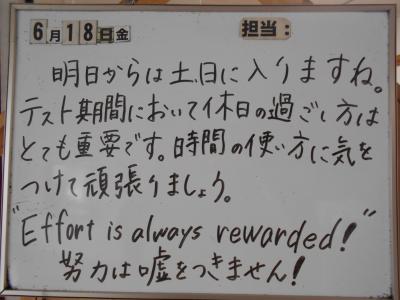 6月18日金 担当：
明日からは土.日に入りますね。
テスト期間において休日の過ごし方は
とても重要です。時間の使い方に気を
つけて頑張りましょう。
"Effort is always rewarded!"
努力は嘘をつきません!